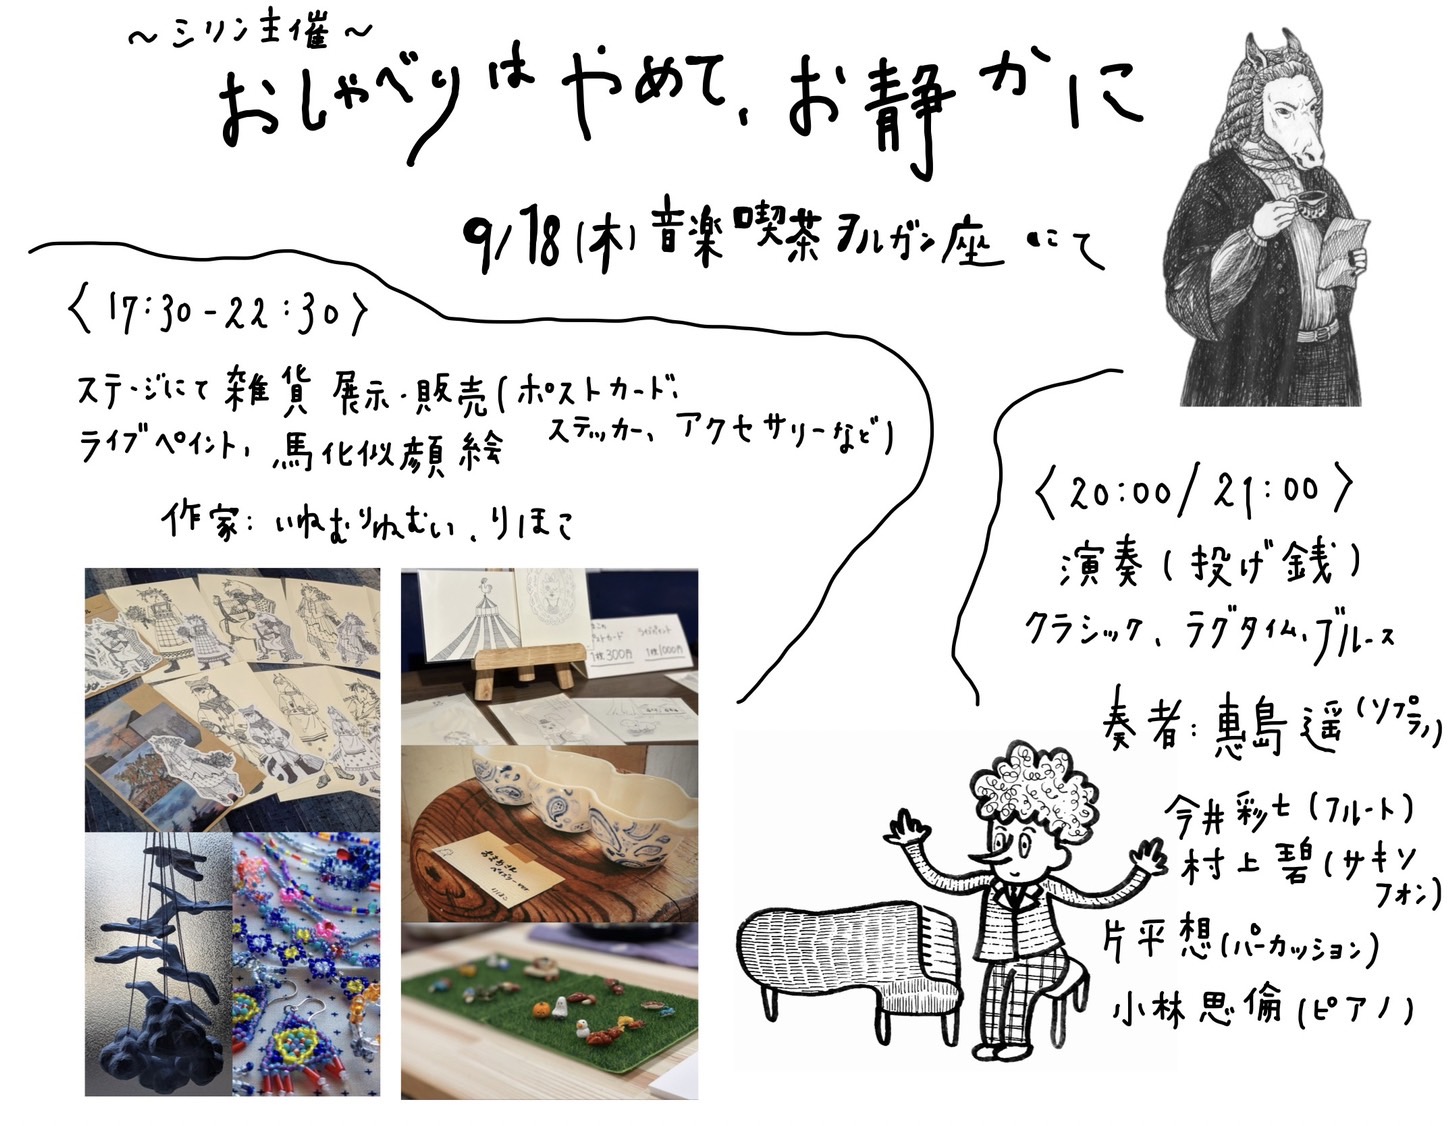 ～シリン主催～
おしゃべりはやめて、お静かに
9/18(木)音楽喫茶ヲルガン座にて
〈17:30-22:30〉
ステージにて雑貨展示・販売(ポストカード、
ステッカー、アクセサリーなど)
ライブペイント、馬化似顔絵
作家：いねむりねむい、りほこ
〈20:00/21:00〉
演奏(投げ銭)
クラシック、ラグタイム、ブルース
奏者：恵島遥(ソプラノ)
今井彩七(フルート)
村上碧(サキソ
フォン)
片平想(パーカッション)
小林思倫(ピアノ)
ポストカード
ライブペイント
1枚300円
1枚1000円